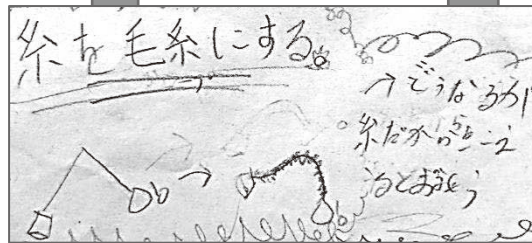 糸を毛糸にする
→どうなるか
糸だから
とおもう